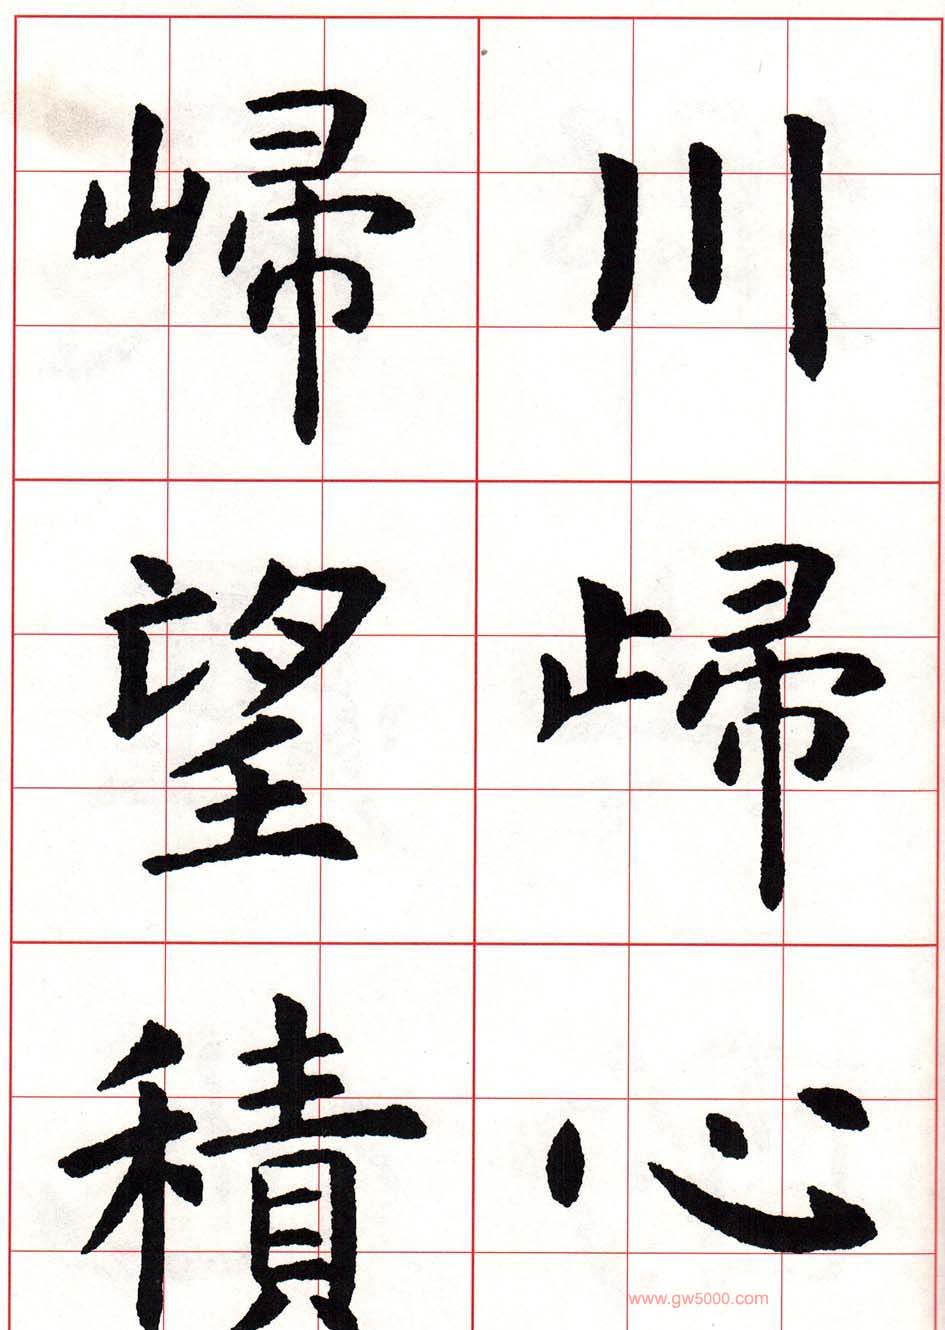 川㱕心
望積
www.gw5000.com